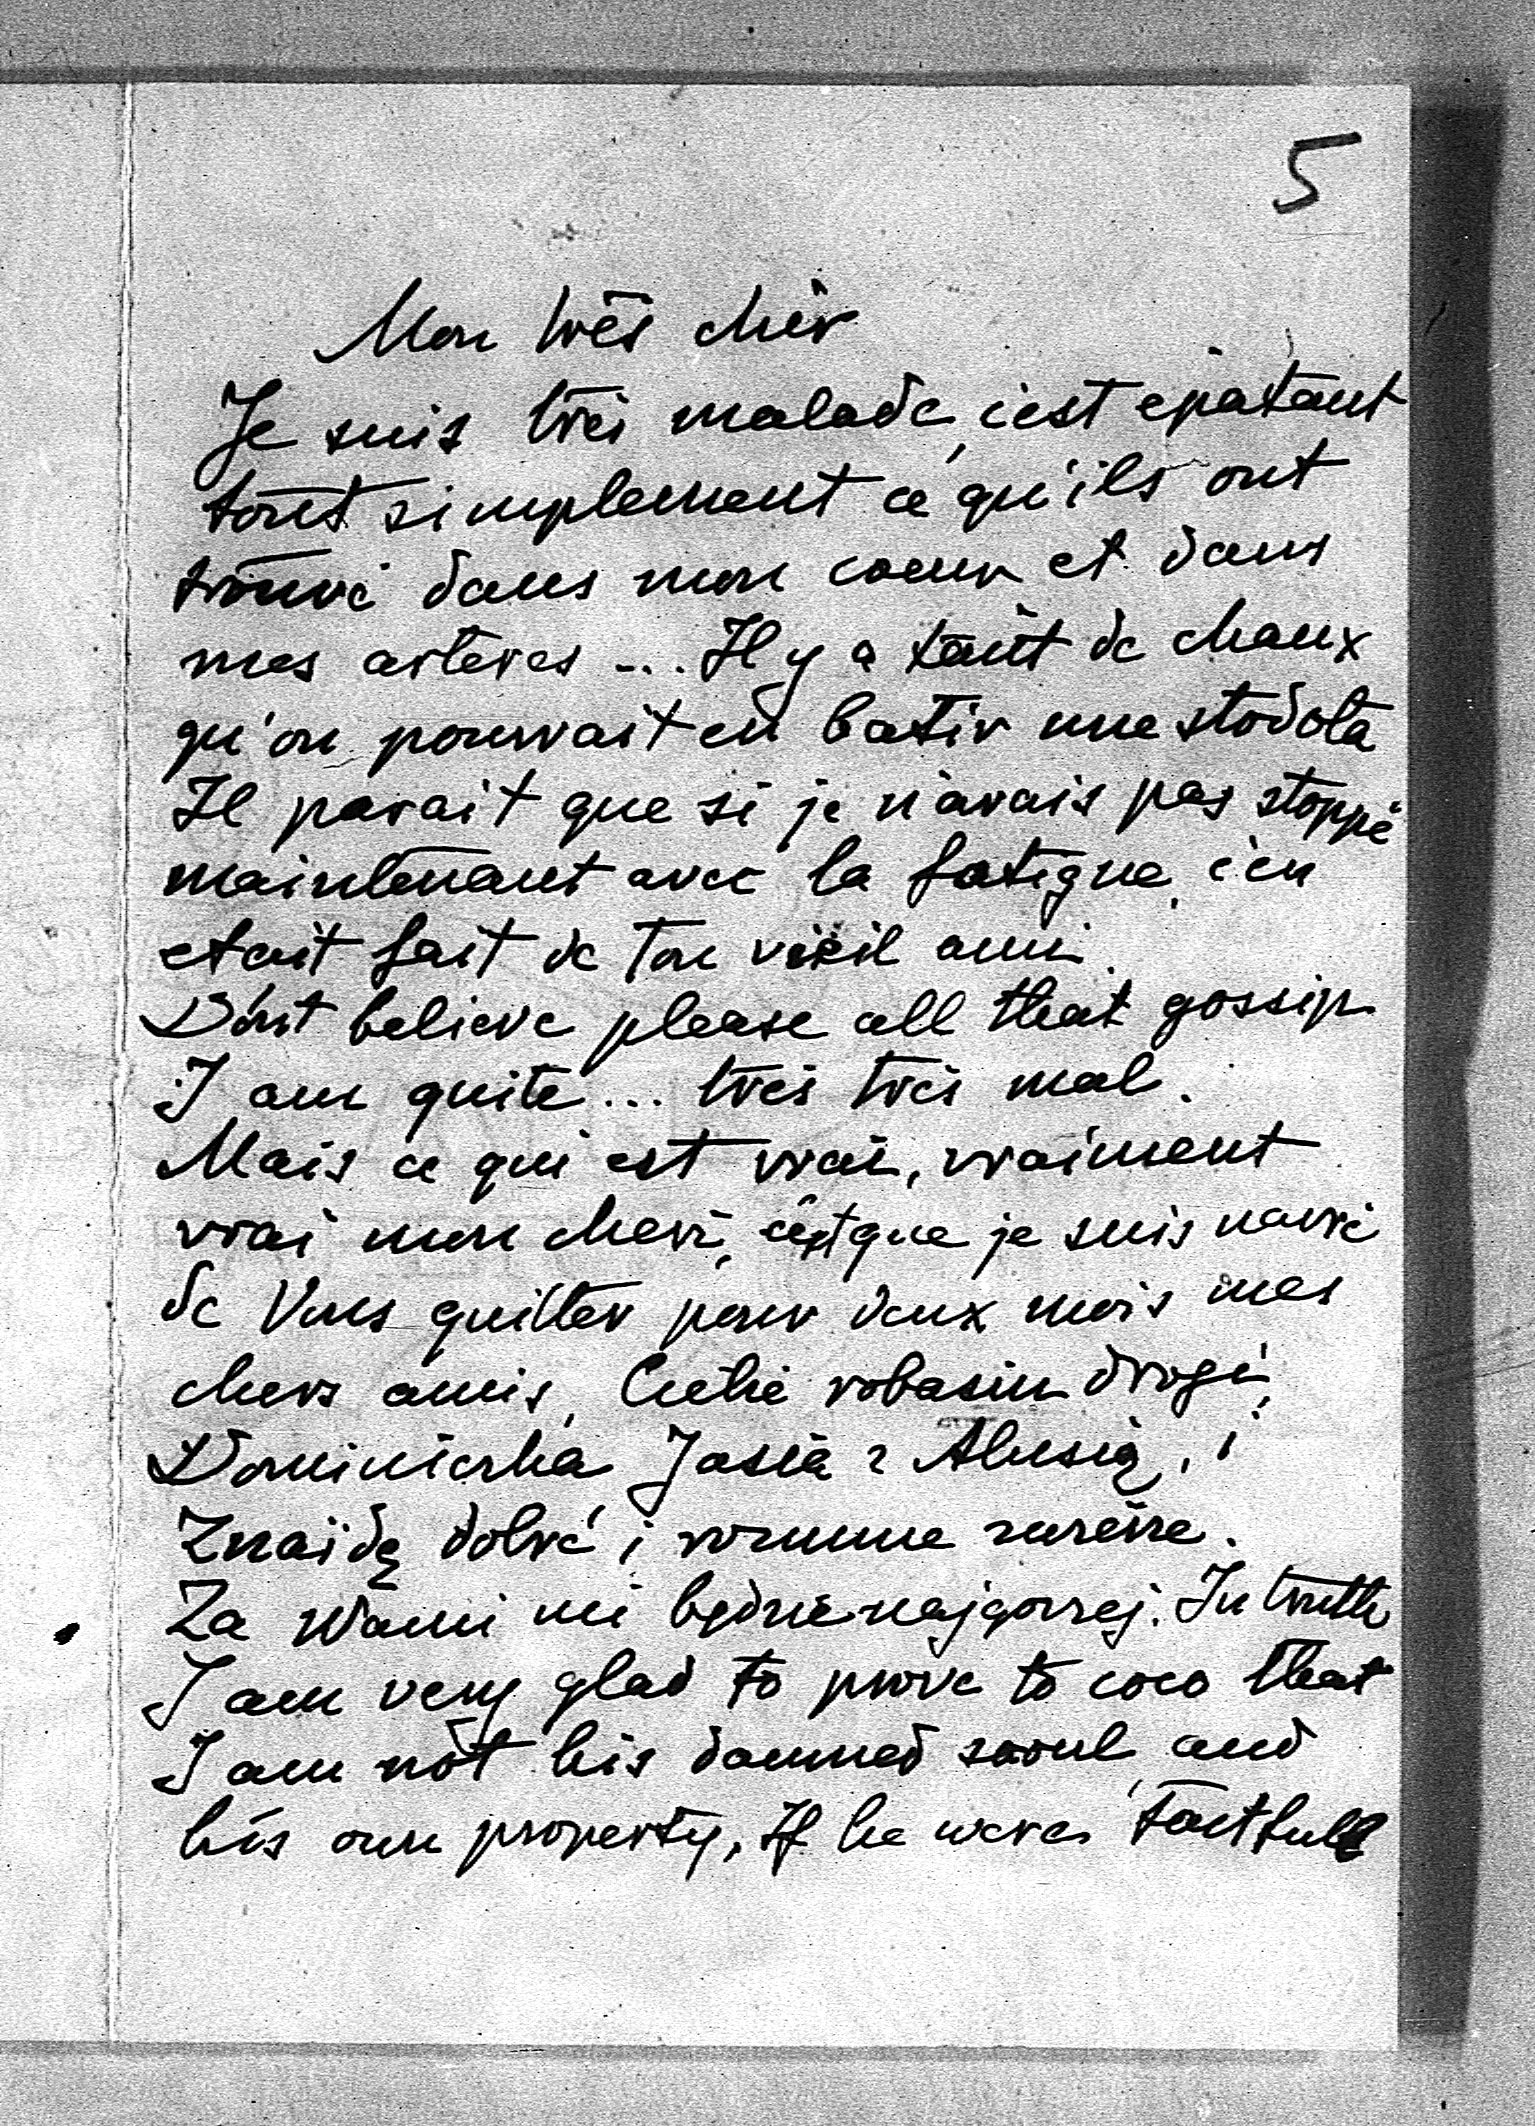 5
Mon très chèr
Je suis très malade, c'est epatant
tout simplement ce qu'ils ont
trouvé dans mon coeur et dans
mes artères ... Il y a tant de chaux
qu'on pourrait en batir une stodoła
Il parait que si je n'avais pas stoppé
maintenant avec la fatigue, c'en
etait fait de Ton vieil ami.
Dont believe please all that gossip
I am quite ... très très mal.
Mais ce qui est vrai, vraiment
vrai mon cheri, c'est que je suis navré
de Vous quitter pour deux mois mes
chers amis, drogi,
Dominiczka Jasia z Alusią, i
Znaidę dobré i rozumne
Za Wami mi będzie najgorzej. In truth
I am very glad to prove to coco that
I am not his damned sooul and
his own property, If he weres tactfull